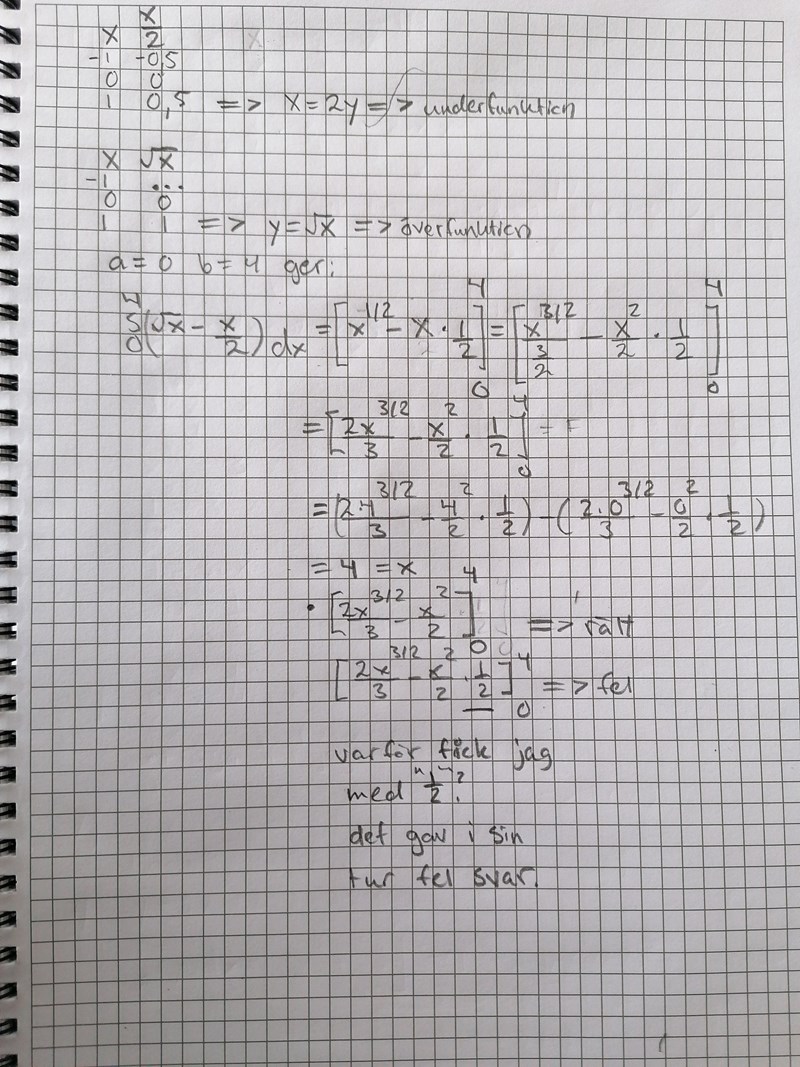 x x/2
-1 -0,5
0 0
1 0,5 => x = 2y => underfunktion
x √x
-1 ...
0 0
1 1 => y = √x => överfunktion
a = 0 b = 4 ger:
∫₀⁴(√x - x/2) dx = [x^1/2 - x · 1/2]₀⁴ = [x^3/2/(3/2) - x²/2 · 1/2]₀⁴
= [2x^3/2/3 - x²/2 · 1/2]₀⁴ =
= (2·4^3/2/3 - 4²/2 · 1/2) - (2·0^3/2/3 - 0²/2 · 1/2)
= 4 = x
• [2x^3/2/3 - x²/2]₀⁴ => rätt
[2x^3/2/3 - x²/2 · 1/2]₀⁴ => fel
varför fick jag
med "1/2"?
det gav i sin
tur fel svar.